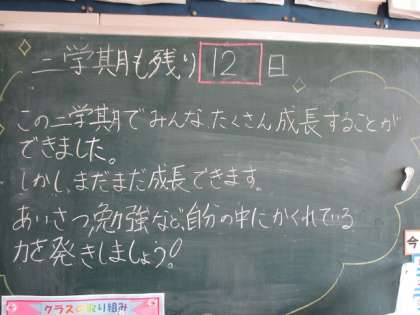 二学期も残り12日
この二学期でみんな、たくさん成長することが
できました。
しかし、まだまだ成長できます。
あいさつ、勉強など、自分の中にかくれている
力を発きしましょう!
クラスの取り組み
今